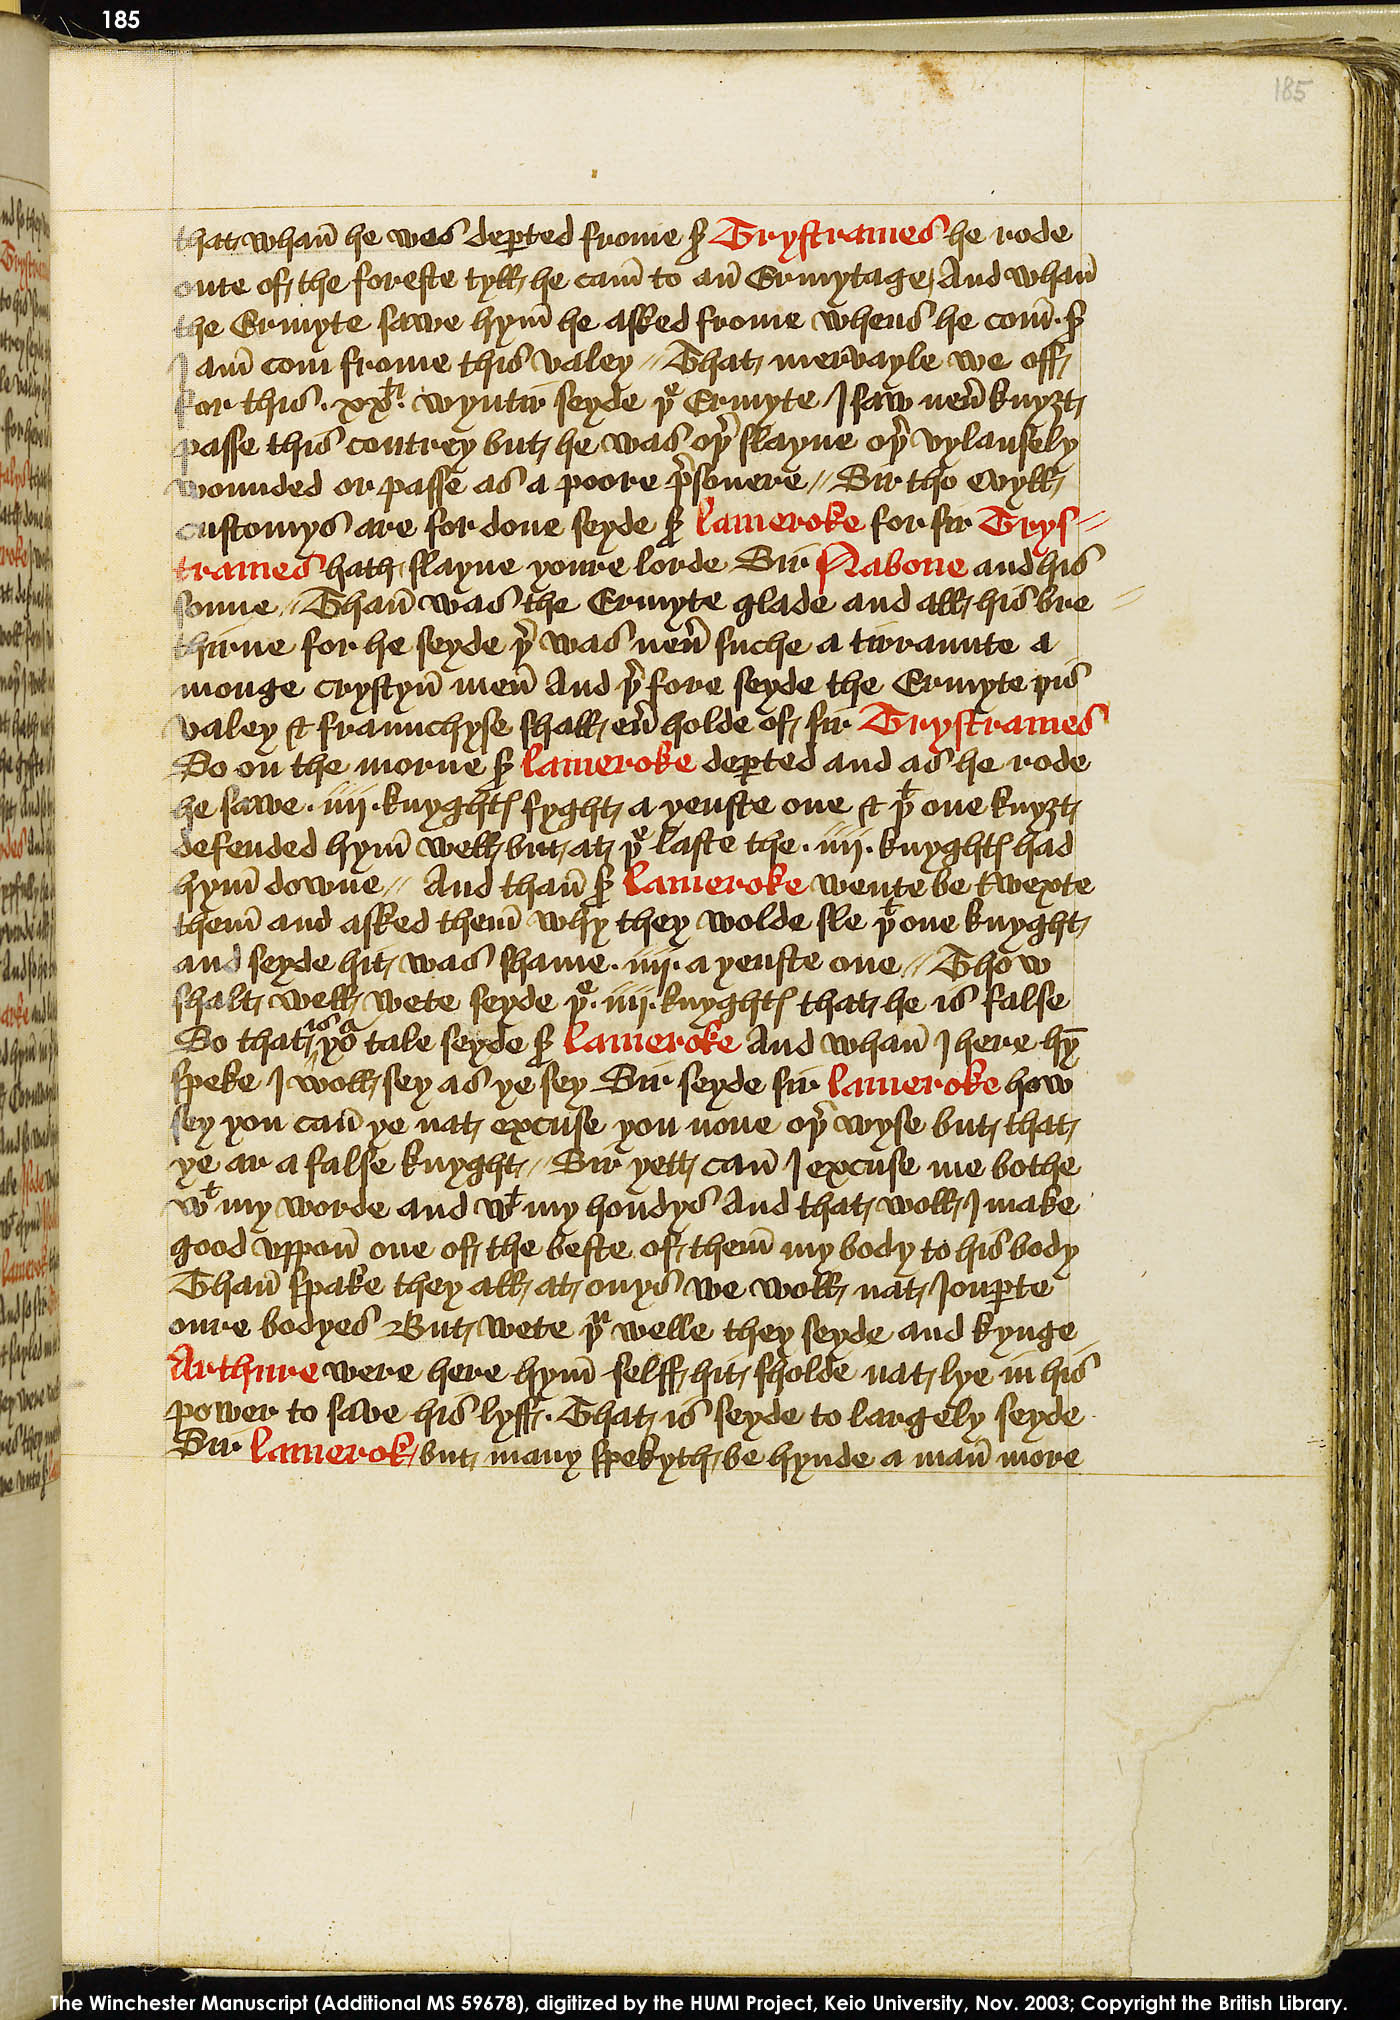 185
185
that whan̄ he was dep̱ted frome ẜ Trystrames he rode
oute of the foreste tyll he cam̄ to an̄ Ermytage / And whan̄
the Ermyte sawe hym̄ he asked frome whens he com̄ · ẜ
I am̄ com frome this valey // That mervayle we off
for this · xxᵗⁱ · wyntir seyde þᵉ Ermyte I saw neū knyȝt
passe this contrey but he was oþ̉ slayne oþ̉ vylansely
wounded or passe as a poore p̉sonere // Sir tho evyll
customys are for done seyde ẜ lameroke for sir Trys //
trames hath slayne youre lorde Sir Nabone and his
sonne // Than̄ was the Ermyte glade and all his bre //
thirne for he seyde þ̉ was neū suche a tirraunte a
monge crystyn̄ men̄ And þ̉ fore seyde the Ermyte þis
valey & fraunchyse shall eū holde of sir Trystrames
So on the morne ẜ lameroke dep̱ted and as he rode
he sawe · iiij · knyghtꝭ fyght a yenste one & þᵗ one knyȝt
defended hym̄ well but at þᵉ laste the · iiij · knyghtꝭ had
hym̄ downe // And than̄ ẜ lameroke wente be twexte
them̄ and asked them̄ why they wolde sle þᵗ one knyght
and seyde hit was shame · iiij · a yenste one // Thow
shalt well wete seyde þᵉ · iiij · knyghtꝭ that he is false
So that is yoᵃ tale seyde ẜ lameroke And whan̄ I here hȳ
speke I woll sey as ye sey Sir seyde sir lameroke how
sey you can̄ ye nat excuse you none oþ̉ wyse but that
ye ar a false knyght // Sir yett can̄ I excuse me bothe
wᵗ my worde and wᵗ my hondys And that woll I make
good vppon̄ one of the beste of them̄ my body to his body
Than̄ spake they all at onys we woll nat Ioup̱te
oure bodyes But wete þᵘ welle they seyde and kynge
Arthure were here hym̄ selff hit sholde nat lye in his
power to save his lyff · That is seyde to largely seyde
Sir lamerok but many spekyth be hynde a man̄ more
The Winchester Manuscript (Additional MS 59678), digitized by the HUMI Project, Keio University, Nov. 2003; Copyright the British Library.